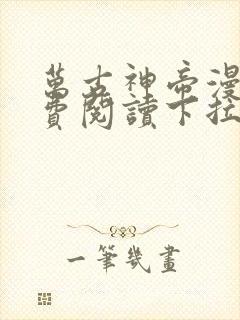 萬古神帝漫
費閱讀下拉
一筆幾畫